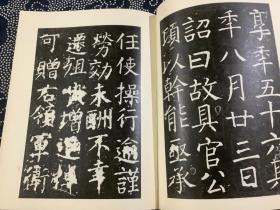 享秊五十六
秊八月廿三日
詔曰故具官公
頃以幹能亟承
任使操行逾謹
勞効未酬不幸
殂增追悼
可贈右領軍衛